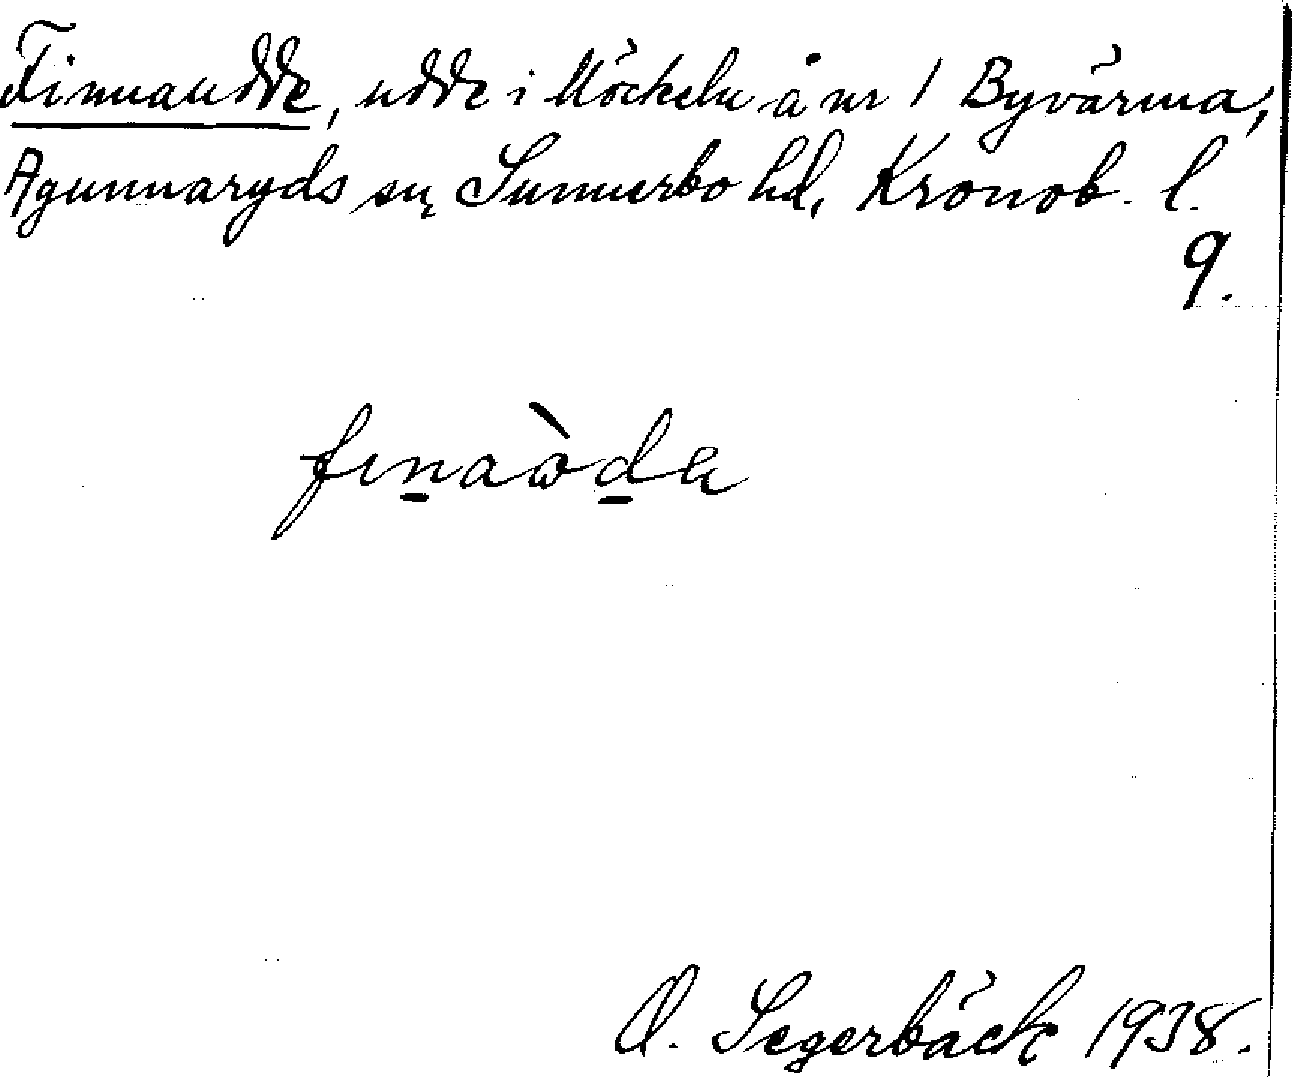 Finnaudde, udde i Möckeln å nr 1 Byvärma,
Agunnaryds sn, Sunnerbo hd, Kronob. l.
9.
fınaὼdɐ
O. Segerbäck 1938.